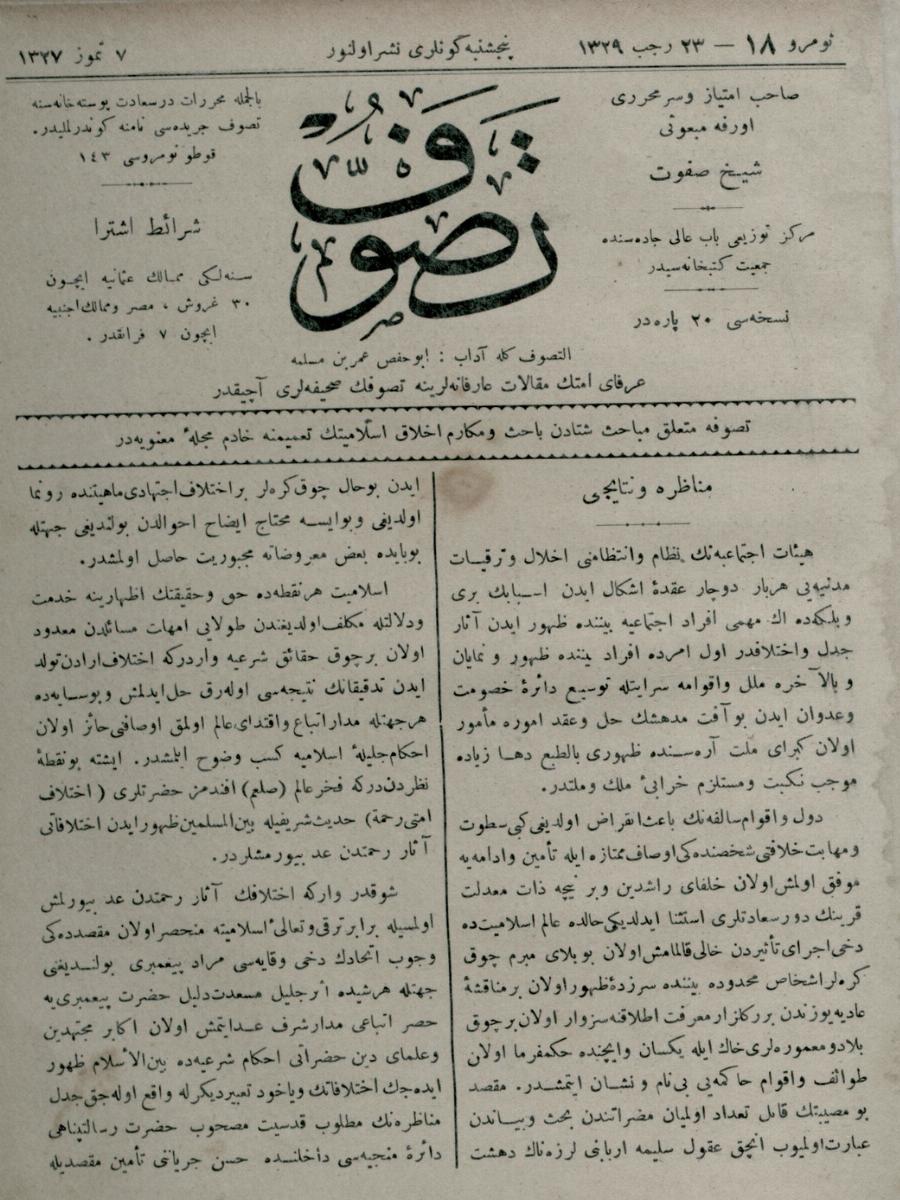 نومرو ١٨ — ٢٣ رجب ١٣٢٩
پنجشنبه كونلرى نشر اولنور
٧ تموز ١٣٢٧
صاحب امتياز وسر محررى
اورفه مبعوثى
شيخ صفوت
مركز توزيعى باب عالى جاده‌سنده
جمعيت كتبخانه‌سيدر
نسخه‌سى ٢٠ پاره‌در
تصوف
بالجمله محررات درسعادت پوسته‌خانه‌سنه
تصوف جريده‌سى نامنه كوندرلمليدر.
قوطو نومروسى ١٤٣
شرائط اشترا
سنه‌لكى ممالك عثمانيه ايچون
٣٠ غروش ، مصر وممالك اجنبيه
ايچون ٧ فرانقدر .
التصوف كله آداب : ابوحفص عمر بن مسلمه
عرفاى امتك مقالات عارفانه‌لرينه تصوفك صحيفه‌لرى آچيقدر
تصوفه متعلق مباحث شتادن باحث ومكارم اخلاق اسلاميتك تعميمنه خادم مجلهٔ معنويه‌در
مناظره ونتايجى
هيئات اجتماعيه‌نك نظام وانتظامنى اخلال وترقيات
مدنيه‌يى هربار دوچار عقدهٔ اشكال ايدن اسبابك برى
وبلكه‌ده اك مهمى افراد اجتماعيه بيننده ظهور ايدن آثار
جدل واختلافدر اول امرده افراد بيننده ظهور ونمايان
وبالآخره ملل واقوامه سرايتله توسيع دائرهٔ خصومت
وعدوان ايدن بو آفت مدهشك حل وعقد اموره مأمور
اولان كبراى ملت آره‌سنده ظهورى بالطبع دها زياده
موجب نكبت ومستلزم خرابىٔ ملك وملتدر.
دول واقوام سالفه‌نك باعث انقراض اولديغى كبى سطوت
ومهابت خلافتى شخصنده‌كى اوصاف ممتازه ايله تأمين وادامه‌يه
موفق اولمش اولان خلفاى راشدين وبر نيچه ذات معدلت
قرينك دور سعادتلرى استثنا ايدلديكى حالده عالم اسلاميت‌ده
دخى اجراى تأثيردن خالى قالمامش اولان بو بلاى مبرم چوق
كره‌لر اشخاص محدوده بيننده سرزدهٔ ظهور اولان بر مناقشهٔ
عاديه يوزندن برر كلزار معرفت اطلاقنه سزوار اولان بر چوق
بلاد ومعموره‌لرى خاك ايله يكسان وايچنده حكمفرما اولان
طوائف واقوام حاكمه‌يى بى نام ونشان ايتمشدر. مقصد
بو مصيبتك قابل تعداد اولميان مضراتندن بحث وبياندن
عبارت اولميوب انجق عقول سليمه اربابنى لرزه‌ناك دهشت
ايدن بوحال چوق كره‌لر بر اختلاف اجتهادى ماهيتنده رونما
اولديغى وبوايسه محتاج ايضاح احوالدن بولنديغى جهتله
بوبابده بعض معروضاته مجبوريت حاصل اولمشدر.
اسلاميت هر نقطه‌ده حق وحقيقتك اظهارينه خدمت
ودلالتله مكلف اولديغندن طولايى امهات مسائلدن معدود
اولان بر چوق حقائق شرعيه واردركه اختلاف ارادن تولد
ايدن تدقيقاتك نتيجه‌سى اوله‌رق حل ايدلمش وبوسايه‌ده
هرجهتله مدار اتباع واقتداى عالم اولمق اوصافنى حائز اولان
احكام جليلهٔ اسلاميه كسب وضوح ايلمشدر. ايشته بو نقطهٔ
نظردن‌دركه فخر عالم (صلعم) افندمز حضرتلرى ( اختلاف
امتى رحمة) حديث شريفيله بين المسلمين ظهور ايدن اختلافاتى
آثار رحمتدن عد بيورمشلردر.
شوقدر واركه اختلافك آثار رحمتدن عد بيورلمش
اولمسيله برابر ترقى وتعالىٔ اسلاميته منحصر اولان مقصدده‌كى
وجوب اتحادك دخى وقايه‌سى مراد پيغمبرى بولنديغى
جهتله هرشيده اثر جليل مسعدت دليل حضرت پيغمبرى‌يه
حصر اتباعى مدار شرف عد ايتمش اولان اكابر مجتهدين
وعلماى دين حضراتى احكام شرعيه‌ده بين الاسلام ظهور
ايده‌جك اختلافاتك وياخود تعبير ديكرله واقع اوله‌جق جدل
مناظره‌نك مطلوب قدسيت مصحوب حضرت رسالتپناهى
دائرهٔ منجيه‌سى داخلنده حسن جريانى تأمين مقصديله